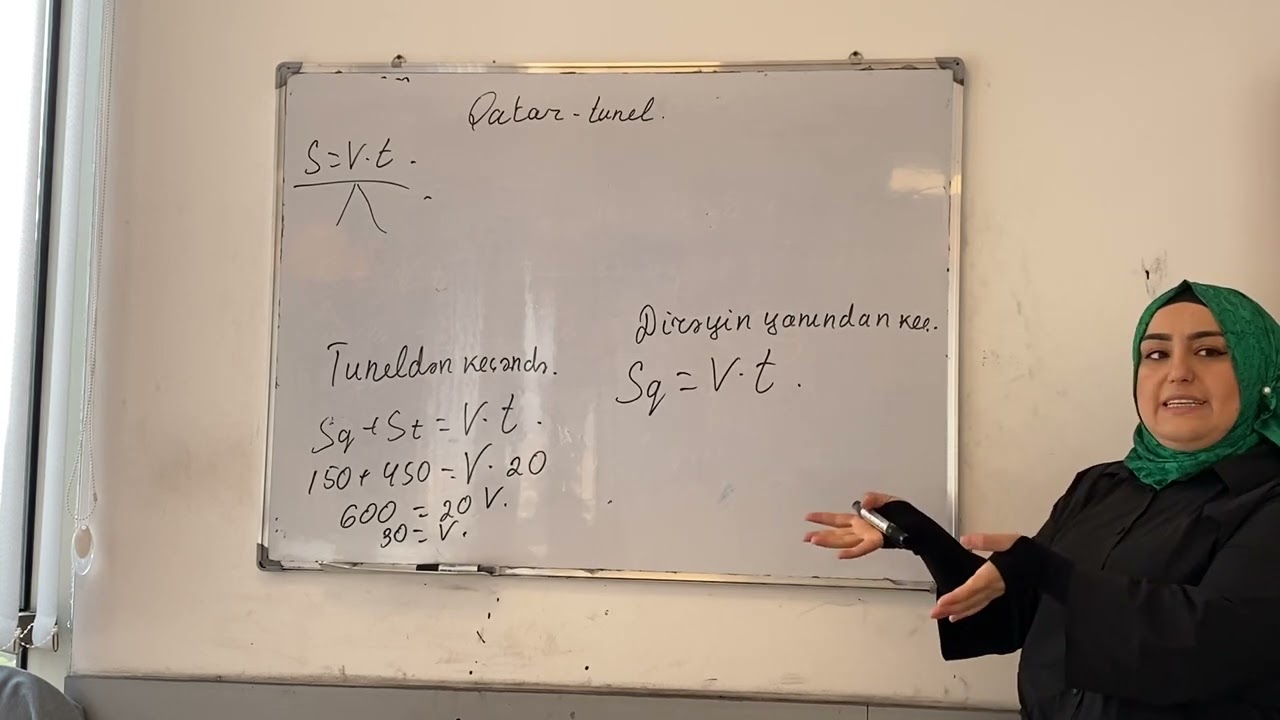 Qatar - tunel.
S = V · t .
Tuneldən keçəndə.
Sq + St = V · t .
150 + 450 = V · 20
600 = 20 V.
30 = V.
Dirəyin yanından keç.
Sq = V · t .